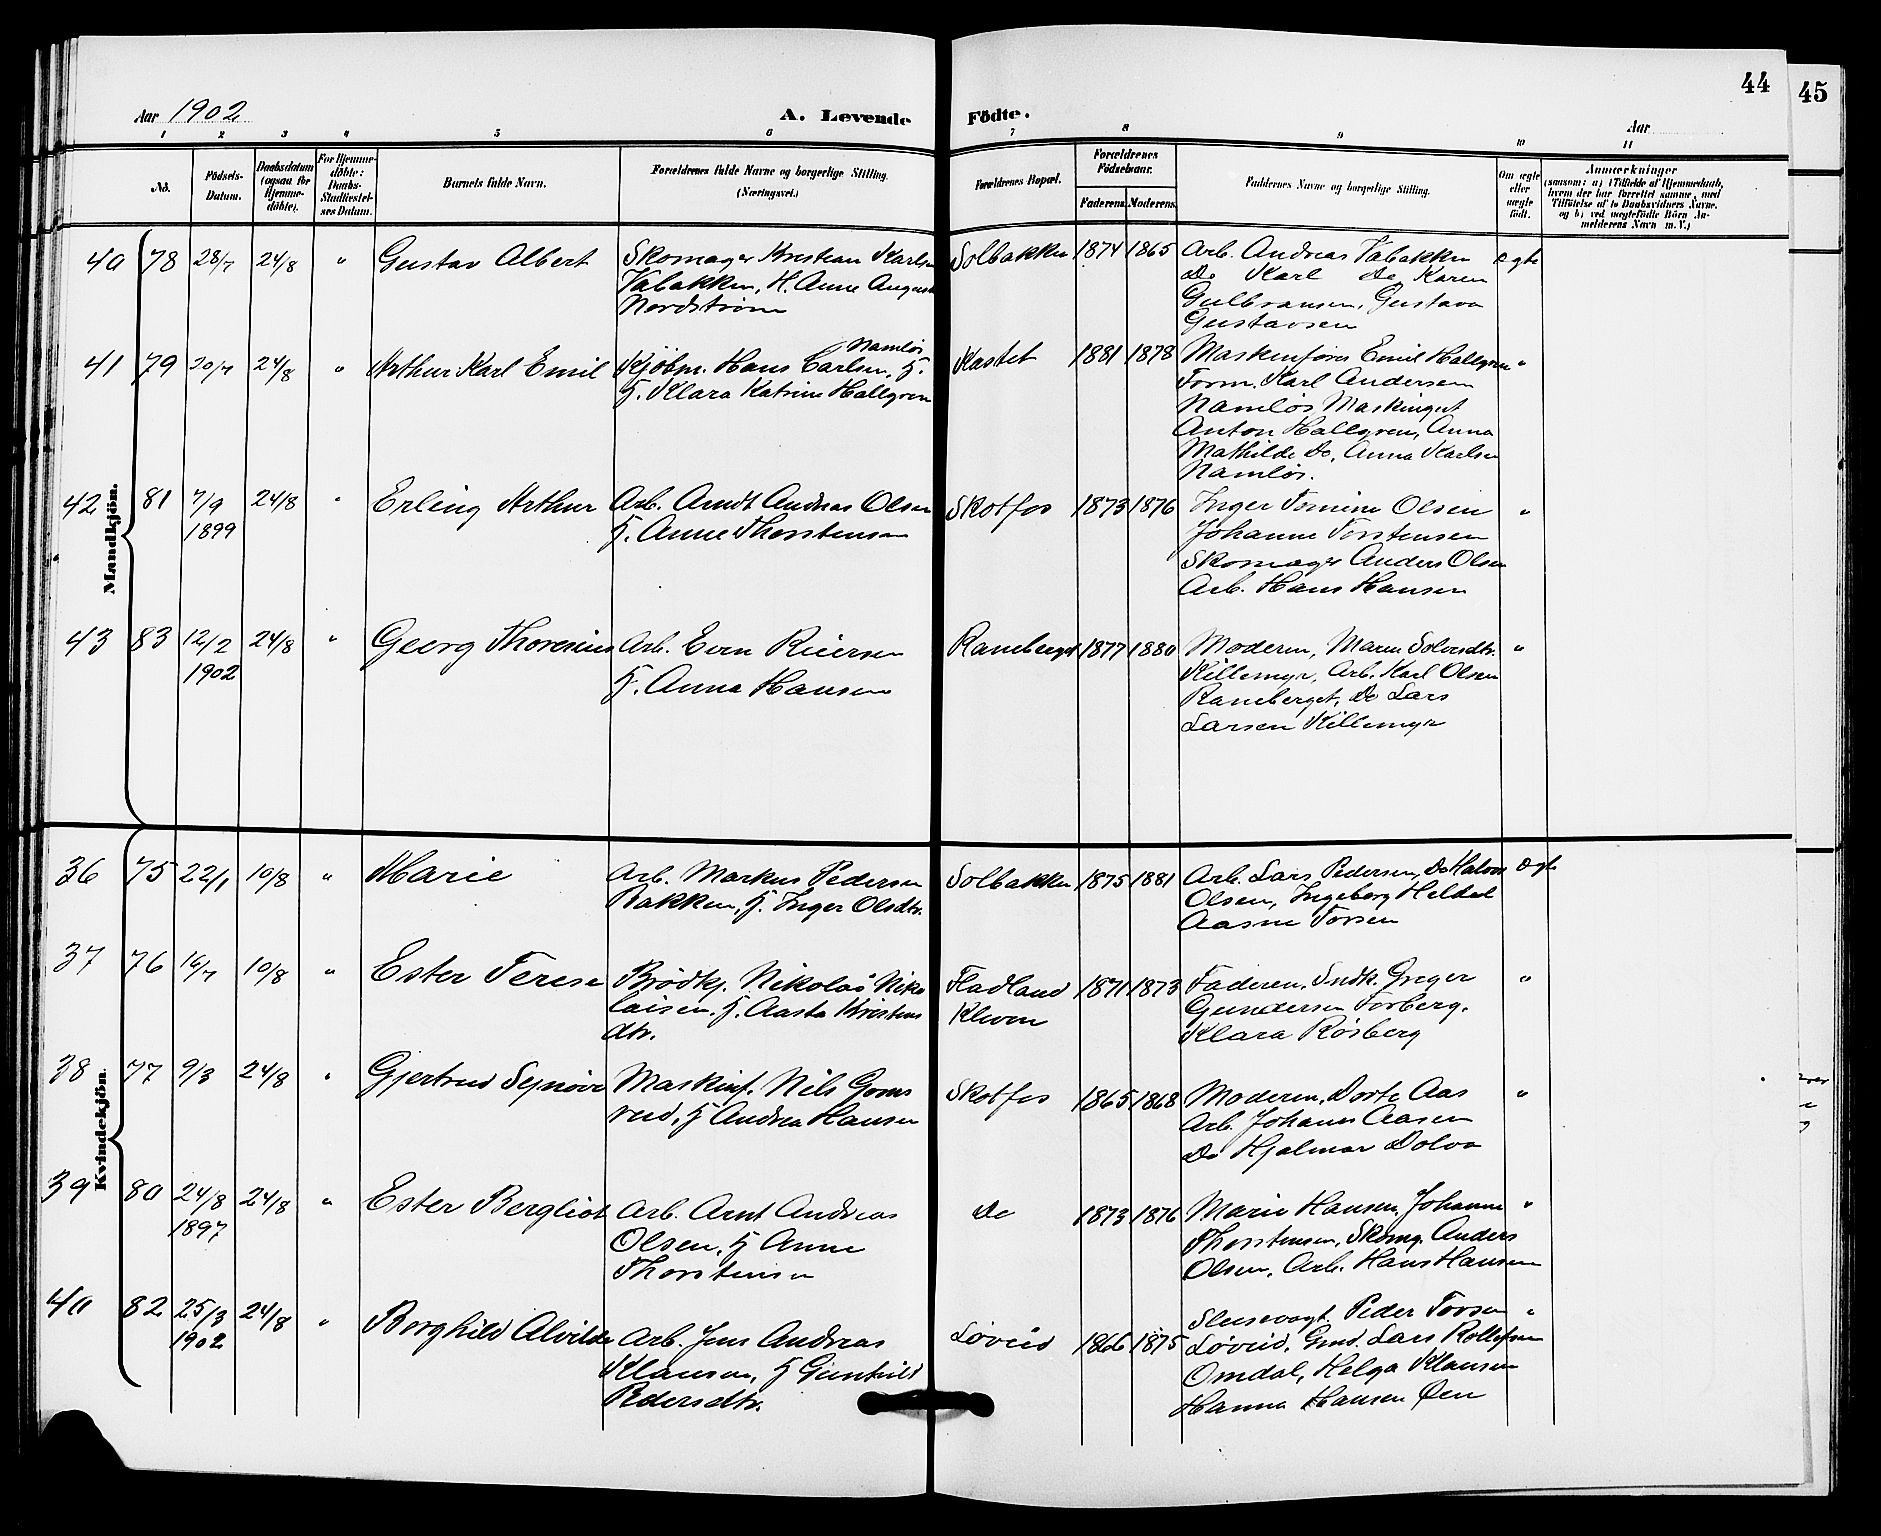 44
45
Aar 1902
A. Levende Födte.
Aar
1 2 3 4 5 6 7 8 9 10 11
No.
Födsels-Datum.
Daabsdatum (ogsaa for Hjemme-döbte).
For Hjemme-döbte: Daabs-Stadfæstel-ses Datum.
Barnets fulde Navn.
Forældrenes fulde Navne og borgerlige Stilling. (Næringsvei.)
Forældrenes Bopæl.
Forældrenes Födselsaar.
Faderens Moderens
Faddernes Navne og borgerlige Stilling.
Om ægte eller uægte födt.
Anmærkninger
(saasom: a) i Tilfælde af Hjemmedaab, hvem der har forrettet samme, med Tilföielse af to Daabsvidners Navne, og b) ved uægtefödte Börn An-melderens Navn m. V.)
Mandkjön.
40 78 28/7 24/8 " Gustav Albert
Skomager Kristian Karlsen
Vabakken, H. Anne Augusta
Nordstrøm
Solbakken 1874 1865
Arb. Andreas Vabakken
Do Karl Do Karen
Gulbransen, Gustava
Gustavsen
Ægte
41 79 20/7 24/8 " Arthur Karl Emil
Namløs
Kjøbm. Hans Carlsen, H.
H. Klara Katrine Hallgren
Kastet 1881 1878
Maskinfører Emil Hallgren "
Form. Karl Andersen
Namløs, Maskingut
Anton Hallgren, Anna
Mathilde Do, Anna Karlsen
Namløs.
42 81 7/9 24/8 " Erling Arthur
1899
Arb. Arndt Andreas Olsen
H. Anne Thorstensen
Skotfos 1873 1876
Inger Tomine Olsen "
Johanne Torstensen
Skomager Anders Olsen
Arb. Hans Hansen
43 83 12/2 24/8 " Georg Thorenius
1902
Arb. Even Reiersen
H. Anna Hansen
Ramberget 1877 1880
Moderen, Maren Solvesdtr. "
Killemyr, Arb. Karl Olsen
Ramberget, Do Lars
Larsen Killemyr
Kvindekjön.
36 75 22/1 10/8 " Marie
Arb. Markus Pedersen
Bakken, H. Inger Olsdtr.
Solbakken 1875 1881
Arb. Lars Pedersen, Do Halvor
Olsen, Ingeborg Heldal
Aasne Torsen
Ægte
37 76 16/7 10/8 " Ester Terese
Brødkj. Nikolai Niko
laisen. H. Aasta Kristens
dtr.
Fladland 1871 1873
Kleven
Faderen, Sndk. Greger "
Gundersen Torberg.
Klara Rösberg
38 77 9/3 24/8 " Gjertrud Synøve
Maskinf. Nils Goms
rud, H Andrea Hansen
Skotfos 1865 1868
Moderen, Dorte Aas "
Arb. Johannes Aasen
Do Hjalmar Dolva
39 80 24/8 24/8 " Ester Bergliot
1897
Arb. Arnt Andreas
Olsen, H Anne
Thorstensen
Do 1873 1876
Marie Hansen, Johanne "
Thorstensen, Skomg. Anders
Olsen, Arb. Hans Hansen
40 82 25/3 24/8 " Borghild Alvilde
1902
Arb. Jens Andreas
Klausen, H Gunhild
Pedersdtr.
Løveid 1866 1875
Slusevogt. Peder Torsen "
Løveid, Grnd. Lars Rollefsen
Omdal, Helga Klausen
Hanna Hansen Øen